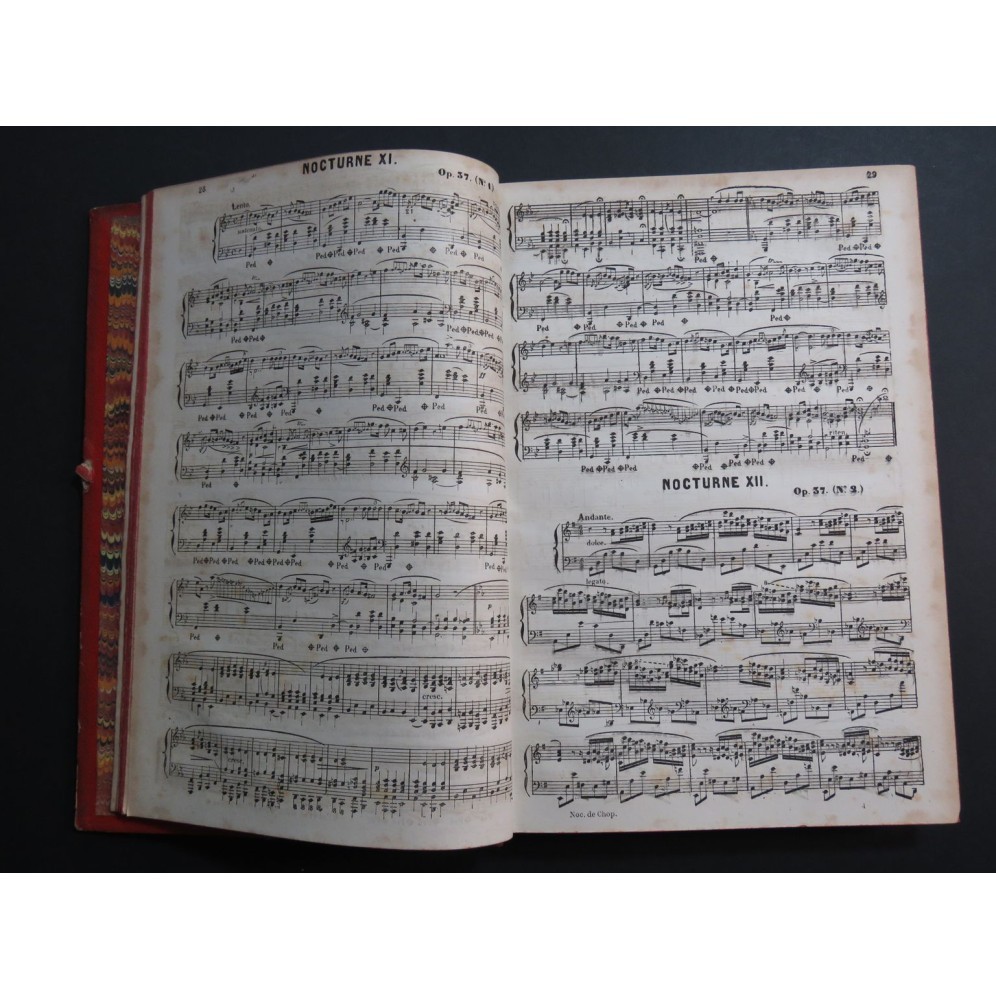 28
NOCTURNE XI.
Op. 37. (Nº 1)
Lento.
Ped
Ped Ped Ped Ped Ped
Ped Ped
Ped Ped Ped
Ped Ped Ped
Ped Ped Ped
Ped
Ped
Ped Ped Ped Ped
Ped Ped
Ped
Ped Ped
cresc.
cresc
29
Ped
Ped Ped
Ped Ped Ped Ped
Ped
Ped Ped Ped Ped Ped Ped
riten.
Ped Ped Ped
Ped Ped
Ped
NOCTURNE XII.
Op. 37. (Nº 2.)
Andante.
dolce.
legato.
8
Noc. de Chop.